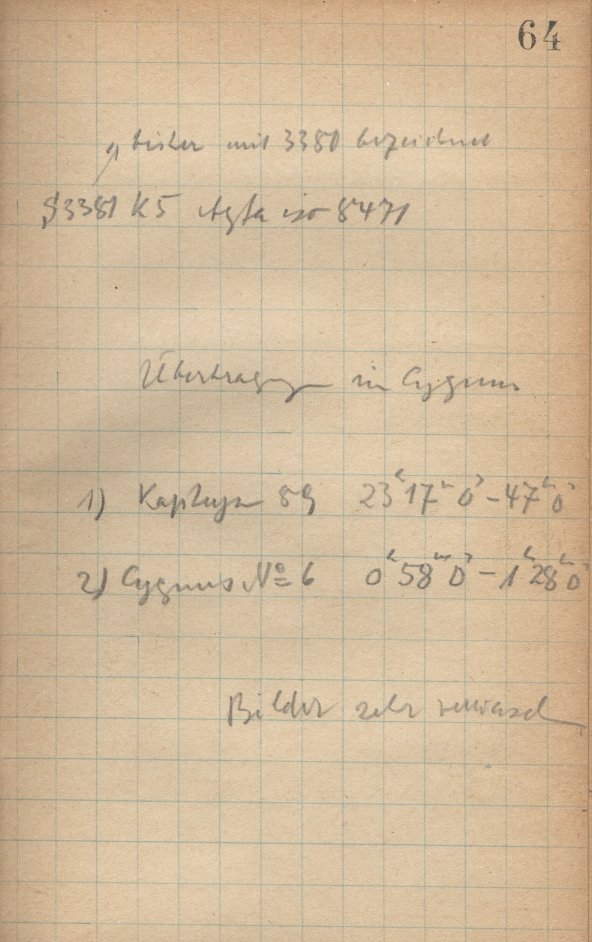 64
bisher mit 3380 bezeichnet
3381 K5 Agfa iso 8471
Übertragung in Cygnus
1) Kapteyn 89 23ʰ17ᵐ0ˢ-47ᵐ0ˢ
2) Cygnus Nº 6 0ʰ58ᵐ0ˢ-1ʰ28ᵐ0ˢ
Bilder sehr verwaschen